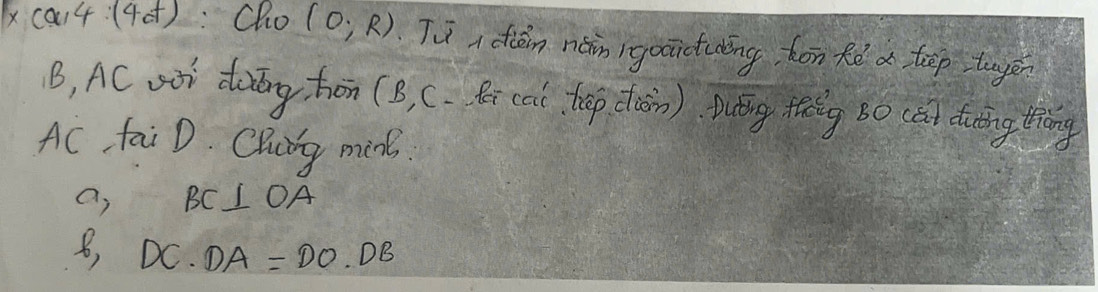 x Câu 4 (4đ) : Cho (O; R). Từ 1 điểm nằm ngoài đường tròn kẻ 2 tiếp tuyến
B, AC với đường tròn (B, C - là các tiếp điểm). Đường thẳng BO cắt đường thẳng
AC tại D. Chứng minh:
a, BC ⊥ OA
b, DC . DA = DO . DB